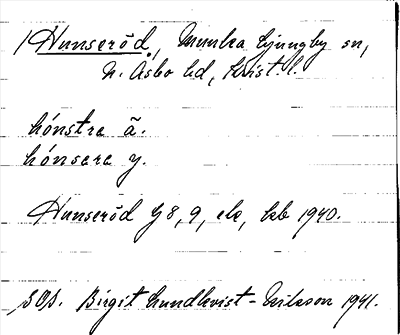 / Hunseröd, Munka Ljungby sn,
N. Åsbo hd, Krist. l.
hónstra ä.
hónsera y.
Hunseröd 98, 9, ek, kb 1940.
SOS. Birgit Lundkvist-Nilsson 1941.